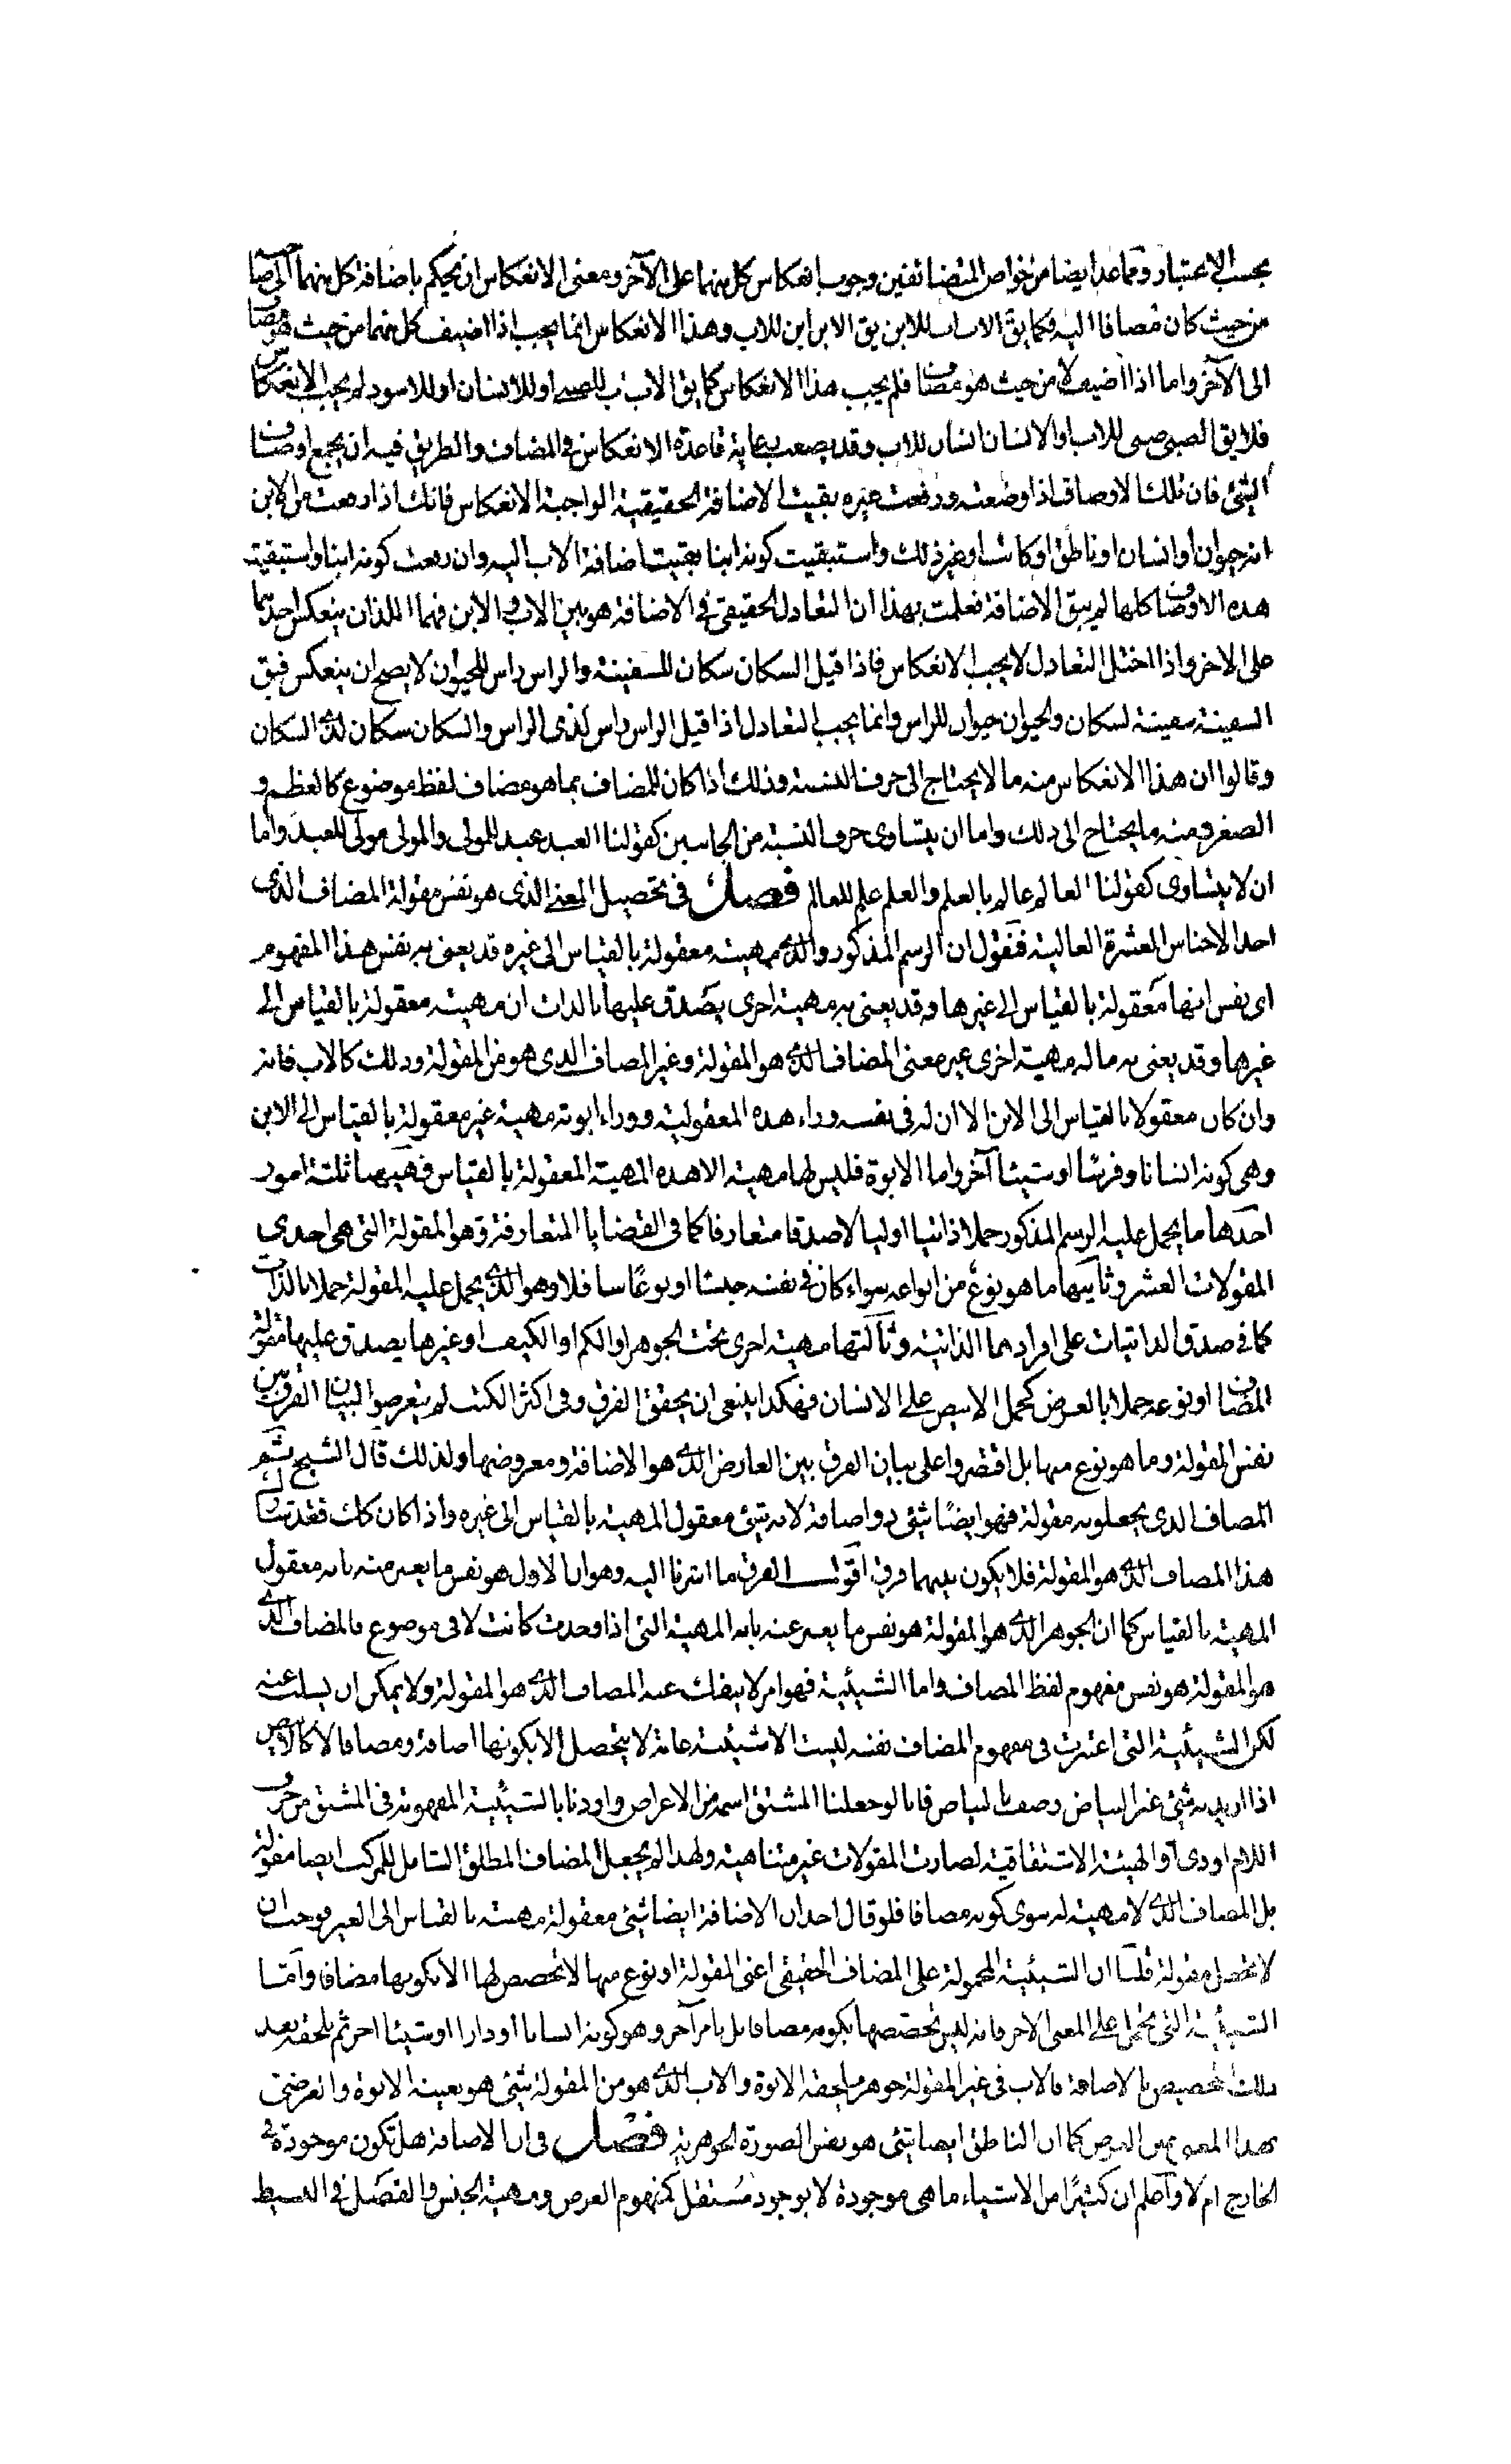 بحسب الاعتبار ومما عد ايضا من خواص المتضائفين وجوب انعكاس كل منهما على الآخر ومعنى الانعكاس ان يحكم باضافة كل منهما الى صاحبه
من حيث كان مضافا اليه فكما يق الاب اب للابن يق الابن ابن للاب وهذا الانعكاس انما يجب اذا اضيف كل منهما من حيث هو مضاف
الى الآخر واما اذا اضيف لا من حيث هو مضاف فلم يجب هذا الانعكاس كما يق الاب اب للصبى او للانسان او للاسود لم يجب الانعكاس
فلا يق الصبى صبى للاب او الانسان انسان للاب وقد يصعب رعاية قاعدة الانعكاس فى المضاف والطريق فيه ان يجمع اوصاف
الشئ فان تلك الاوصاف اذا وضعته ورفعت غيره بقيت الاضافة الحقيقية الواجبة الانعكاس فانك اذا رفعت من الابن
انه حيوان او انسان او ناطق او كاتب او غير ذلك واستبقيت كونه ابنا بقيت اضافة الاب اليه وان رفعت كونه ابنا واستبقيت
هذه الاوصاف كلها لم يبق الاضافة فعلمت بهذا ان التعادل الحقيقى فى الاضافة هو بين الاب والابن فهما اللذان ينعكس احدهما
على الاخر واذا اختل التعادل لا يجب الانعكاس فاذا قيل السكان سكان للسفينة والراس راس للحيوان لا يصح ان ينعكس فيق
السفينة سفينة لسكان والحيوان حيوان للراس وانما يجب التعادل اذا قيل الراس راس لذى الراس والسكان سكان لذى السكان
وقالوا ان هذا الانعكاس منه ما لا يحتاج الى حرف النسبة وذلك اذا كان للمضاف بما هو مضاف لفظ موضوع كالعظيم و
الصغير ومنه ما يحتاج الى ذلك واما ان يتساوى حرف النسبة من الجانبين كقولنا العبد عبد للمولى والمولى مولى للعبد واما
ان لا يتساوى كقولنا العالم عالم بالعلم والعلم علم للعالم فصل فى تحصيل المعنى الذى هو نفس مقولة المضاف الذى
احد الاجناس العشرة العالية فنقول ان الرسم المذكور والذى مهيته معقولة بالقياس الى غيره قد يعنى به نفس هذا المفهوم
اى نفس انها معقولة بالقياس الى غيرها وقد يعنى به مهية اخرى يصدق عليها بالذات ان مهيته معقولة بالقياس الى
غيرها وقد يعنى به ماله مهية اخرى غير معنى المضاف الذى هو المقولة وغير المضاف الذى هو من المقولة وذلك كالاب فانه
وان كان معقولا بالقياس الى الابن الا ان له فى نفسه وراء هذه المعقولية ووراء ابوته مهية غير معقولة بالقياس الى الابن
وهى كونه انسانا او فرسا او شيئا آخر واما الابوة فليس لها مهية الا هذه المهية المعقولة بالقياس فهيهنا ثلثة امور
احدها ما يحمل عليه الرسم المذكور حملا ذاتيا اوليا لا صدقا متعارفا كما فى القضايا المتعارفة وهو المقولة التى هى احدى
المقولات العشر وثانيها ما هو نوع من انواعه سواء كان فى نفسه جنسا او نوعا سافلا وهو الذى يحمل عليه المقولة حملا بالذات
كما فى صدق الذاتيات على افرادهما الذاتية وثالثها مهية اخرى تحت الجوهر او الكم او الكيف او غيرها يصدق عليها مقولة
المضاف او نوعه حملا بالعرض كحمل الابيض على الانسان فهكذا ينبغى ان يحقق الفرق وفى اكثر الكتب لم يتعرضوا لبيان الفرق بين
نفس المقولة وما هو نوع منها بل اقتصروا على بيان الفرق بين العارض الذى هو الاضافة ومعروضها ولذلك قال الشيخ
المضاف الذى يجعلونه مقولة فهو ايضا شئ ذو اضافة لانه شئ معقول المهية بالقياس الى غيره واذا كان كك فقد
هذا المضاف الذى هو المقولة فلا يكون بينهما فرق اقول الفرق ما اشرنا اليه وهو ان الاول هو نفس ما يعبر عنه بانه معقول
المهية بالقياس كما ان الجوهر الذى هو المقولة هو نفس ما يعبر عنه بانه المهية التى اذا وجدت كانت لا فى موضوع فالمضاف الذى
هو المقولة هو نفس مفهوم لفظ المضاف واما الشيئية فهو امر لا ينفك عنه المضاف الذى هو المقولة ولا يمكن ان يسلب عنه
لكن الشيئية التى اعتبرت فى مفهوم المضاف نفسه ليست الا شيئية عامة لا يتحصل الا بكونها اضافة ومضافا لا كالابيض
اذا اريد به شئ غير البياض وصف بالبياض فانا لو جعلنا المشتق اسم من الاعراض واردنا بالشيئية المفهومة فى المشتق من حرف
اللام او ذى او الهيئة الاشتقاقية لصارت المقولات غير متناهية ولهذا لم يجعل المضاف المطلق الشامل للمركب ايضا مقولة
بل المضاف الذى لا مهية له سوى كونه مضافا فلو قال احد ان الاضافة ايضا شئ معقولة مهيته بالقياس الى الغير فوجب ان
لا تحصل مقولة قلنا ان الشيئية المحمولة على المضاف الحقيقى اعنى المقولة او نوع منها لا تخصص لها الا بكونها مضافا واما
الشيئية التى تحمل على المعنى الاخر فانه ليس تخصصها بكونه مضافا بل بامر آخر وهو كونه انسانا او دارا او شيئا اخر ثم يلحقه بعد
ذلك تخصيص بالاضافة فالاب فى غير المقولة جوهر يلحقه الابوة والاب الذى هو من المقولة شئ هو بعينه الابوة والعرضى
بهذا المعنى عين العرض كما ان الناطق ايضا شئ هو نفس الصورة الجوهرية فصل فى ان الاضافة هل تكون موجودة فى
الخارج ام لا واعلم ان كثيرا من الاشياء ما هى موجودة لا بوجود مستقل كمفهوم العرض ومهية الجنس والفصل فى البسيط